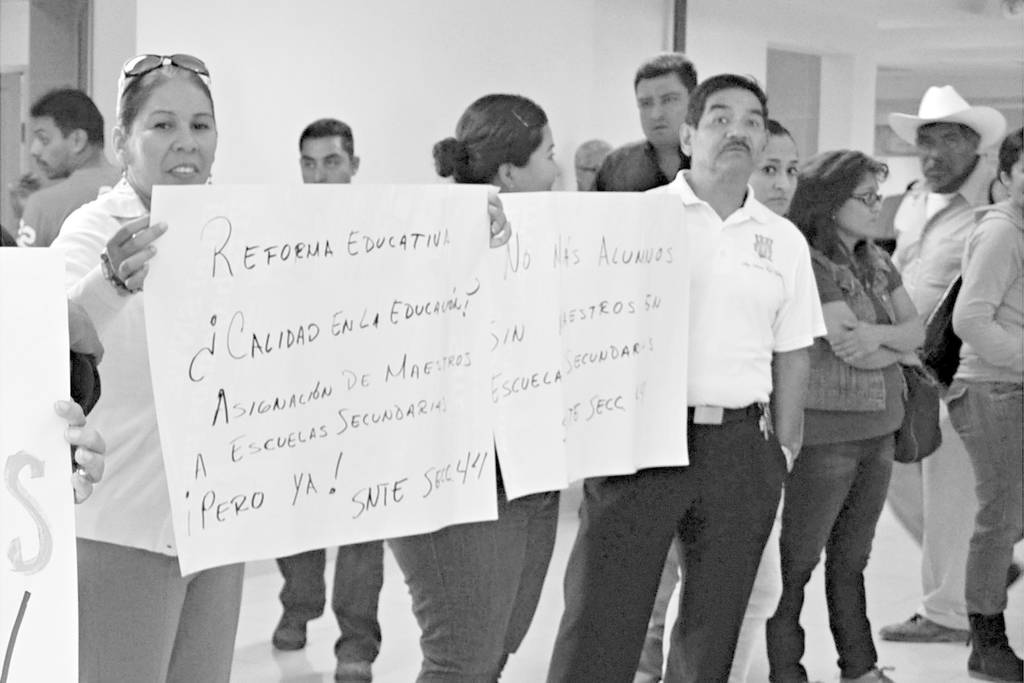 REFORMA EDUCATIVA
¿¡CALIDAD EN LA EDUCACIÓN!?
ASIGNACIÓN DE MAESTROS
A ESCUELAS SECUNDARIAS
¡PERO YA! SNTE SECC 44
NO MÁS ALUMNOS
SIN MAESTROS EN
ESCUELA SECUNDARIS
SECC
S